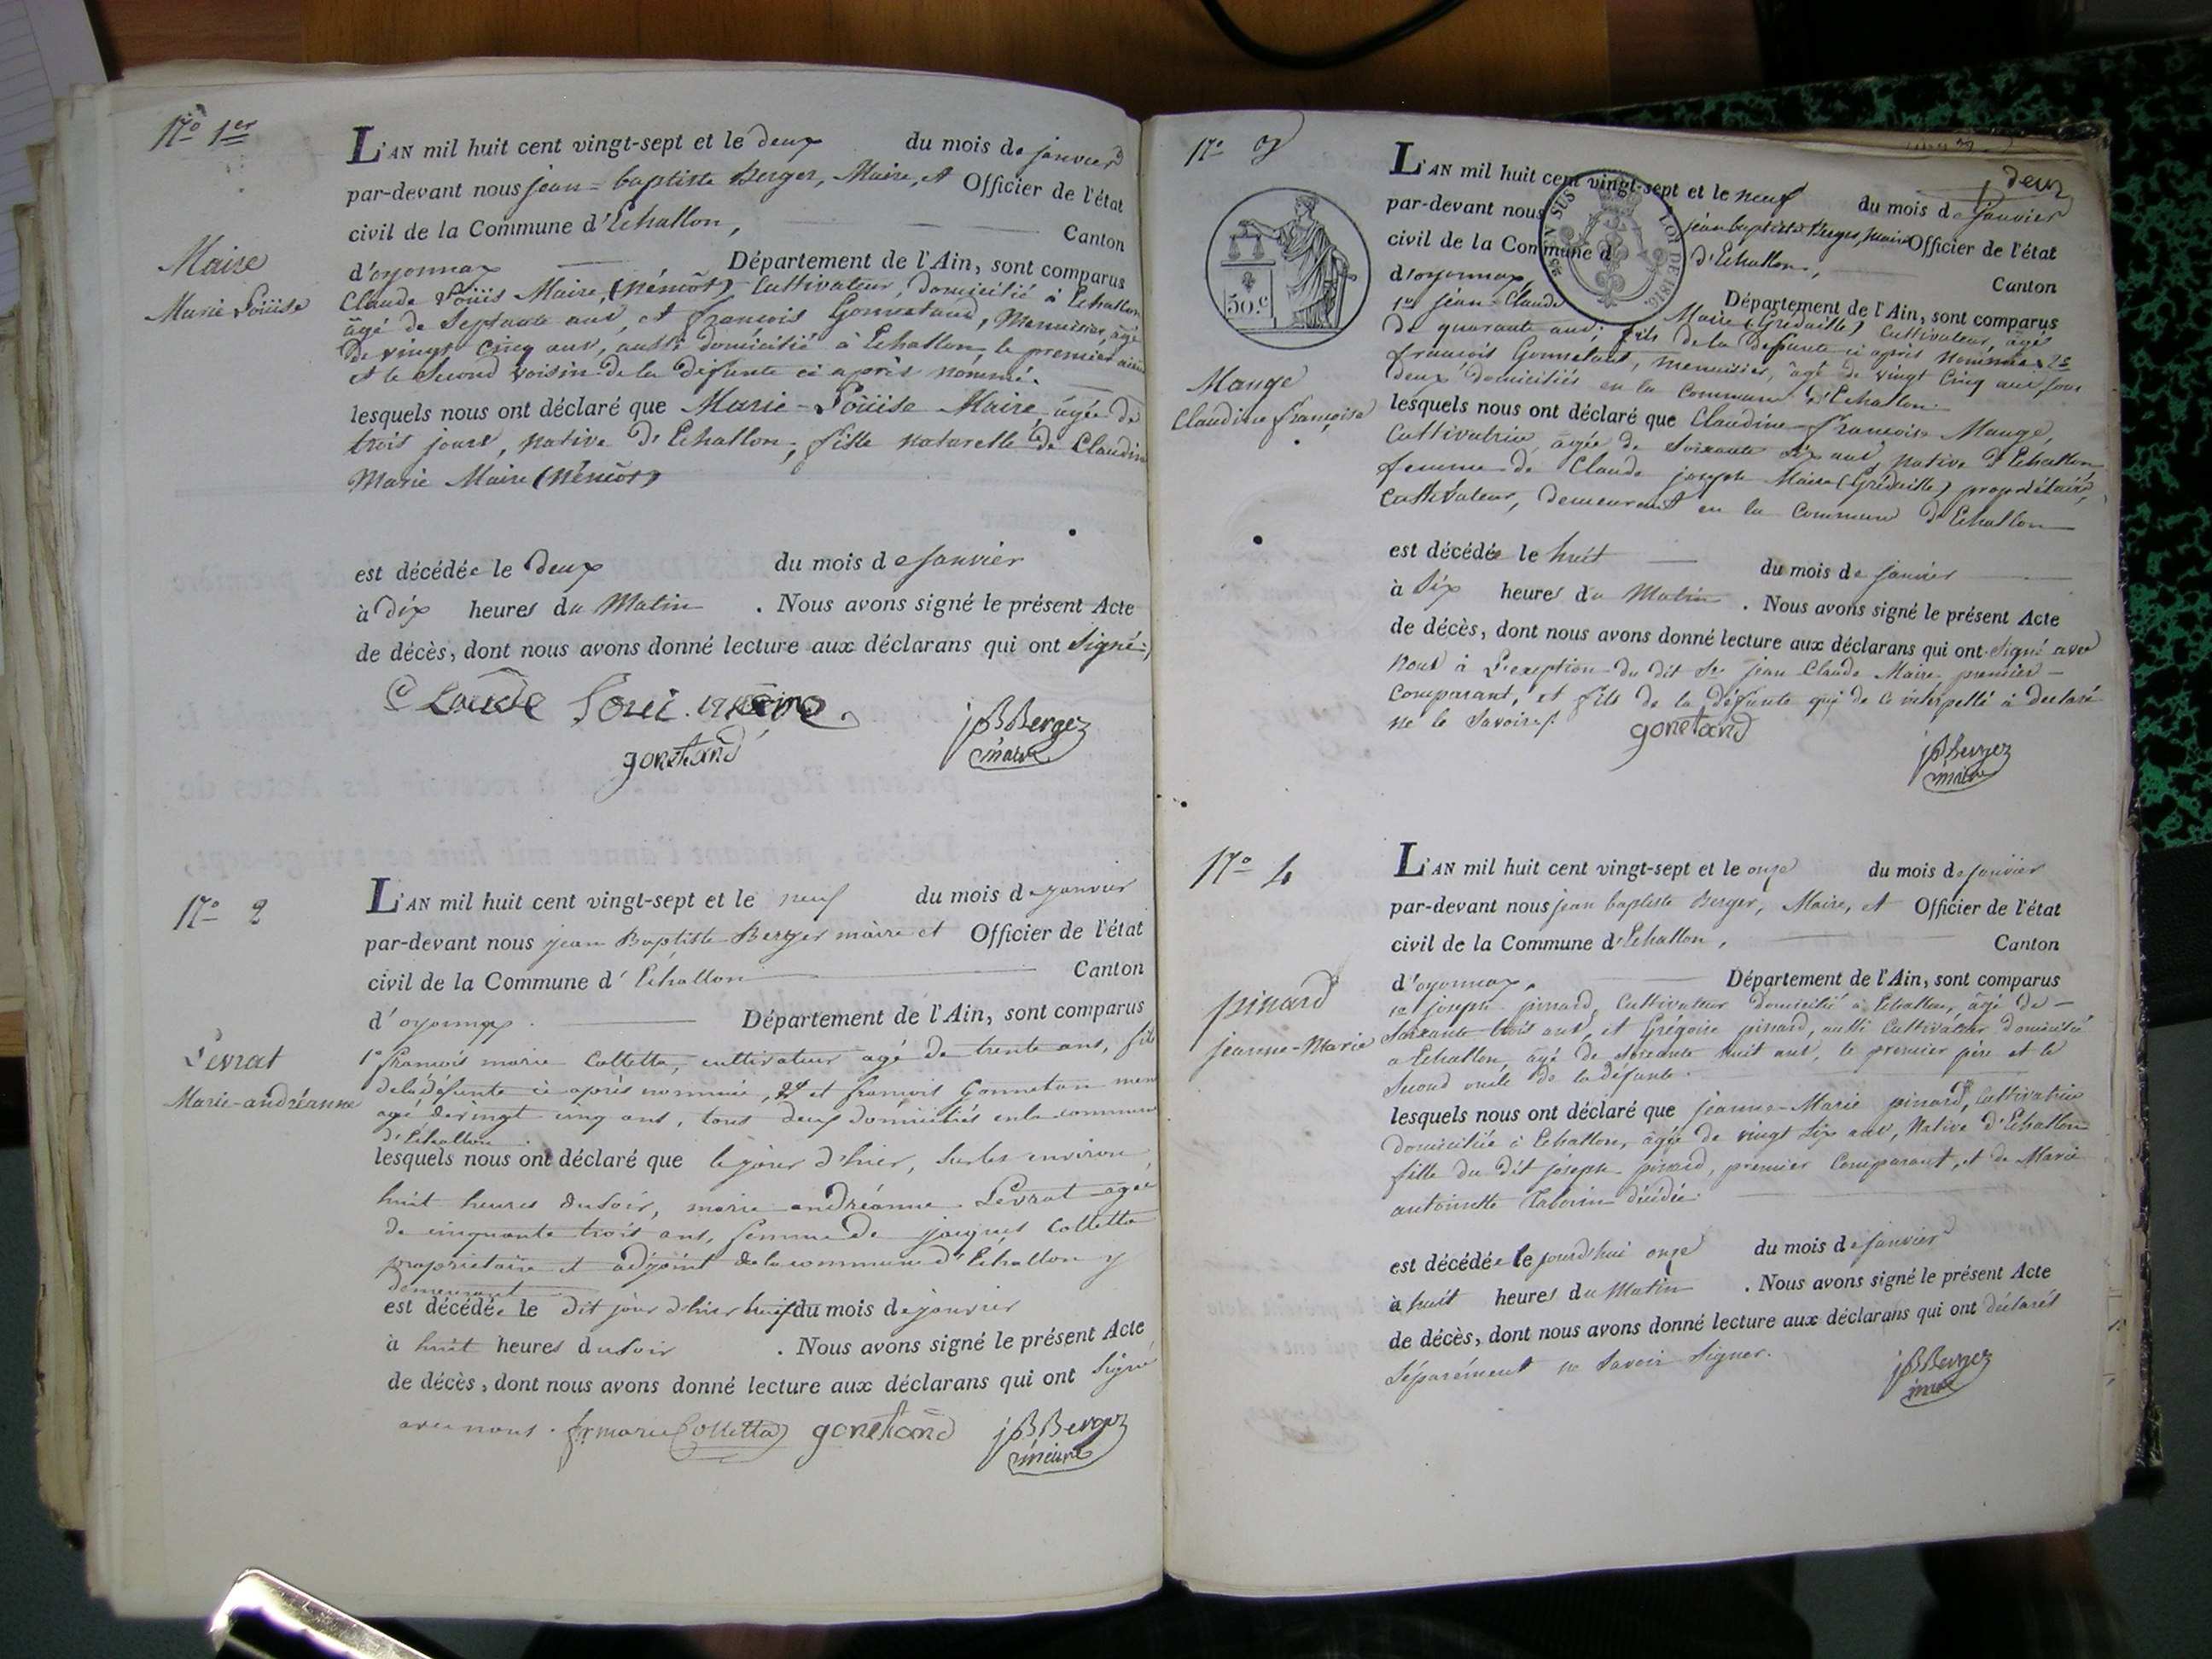 No 1er
L'AN mil huit cent vingt-sept et le deux du mois de janvier
par-devant nous jean-baptiste Berger, Maire, et Officier de l'état
civil de la Commune d'Echallon, Canton
d'oyonnax Département de l'Ain, sont comparus
Maire
Marie Loüise
Claude Loüis Maire, cultivateur, domicilié à Echallon
âgé de Septante ans, et françois Gonnetand, Menuisier, âgé
de vingt cinq ans, aussi domicilié à Echallon, le premier
et le Second voisin de la défunte ci après nommé.
lesquels nous ont déclaré que Marie-Loüise Maire, âgée de
trois jours, native d'Echallon, fille naturelle de Claudine
Marie Maire
est décédée le deux du mois de janvier
à dix heures du Matin. Nous avons signé le présent Acte
de décès, dont nous avons donné lecture aux déclarans qui ont signé.
Claude Loui maire
gonetand
jBBerger
maire
No 2
L'AN mil huit cent vingt-sept et le neuf du mois de janvier
par-devant nous jean Baptiste Berger maire et Officier de l'état
civil de la Commune d'Echallon Canton
d'oyonnax. Département de l'Ain, sont comparus
Levrat
Marie-andréanne
1o françois marie Colletta, cultivateur agé de trente ans, fils
de la défunte ci après nommée, et françois Gonnetan
agé de vingt cinq ans, tous deux domiciliés en la commune
d'Echallon.
lesquels nous ont déclaré que le jour d'hier, sur les environ
huit heures du soir, marie andréanne Levrat agée
de cinquante trois ans, femme de jacques Colletta
propriétaire et adjoint de la commune d'Echallon y
demeurant
est décédée le dit jour d'hier huit du mois de janvier
à huit heures du soir. Nous avons signé le présent Acte
de décès, dont nous avons donné lecture aux déclarans qui ont signé
avec nous. fr marie Colletta gonetand jBBerger
maire
deux
No 3
L'AN mil huit cent vingt-sept et le neuf du mois de janvier
par-devant nous jean baptiste Berger, maire Officier de l'état
civil de la Commune d'Echallon, Canton
d'oyonnax, Département de l'Ain, sont comparus
LOI DE 1816
50.c
Mauge
Claudine françoise
1o jean-Claude Maire (Grédaille) Cultivateur, âgé
de quarante ans, fils de la défunte ci après nommée 2o
françois Gonnetant, menuisier, âgé de vingt cinq ans tous
deux domiciliés en la commune d'Echallon
lesquels nous ont déclaré que Claudine-françoise Mauge,
Cultivatrice, âgée de soixante dix ans, native d'Echallon
femme de Claude joseph Maire (Grédaille) propriétaire,
cultivateur, demeurant en la Commune d'Echallon
est décédée le huit du mois de janvier
à six heures du Matin. Nous avons signé le présent Acte
de décès, dont nous avons donné lecture aux déclarans qui ont signé avec
nous à l'exeption du dit Sr jean Claude Maire, premier
comparant, et fils de la défunte qui de ce interpellé à déclaré
ne le savoir.
gonetand
jBBerger
maire
No 4
L'AN mil huit cent vingt-sept et le onze du mois de janvier
par-devant nous jean baptiste Berger, Maire, et Officier de l'état
civil de la Commune d'Echallon, Canton
d'oyonnax, Département de l'Ain, sont comparus
pinard
jeanne-Marie
joseph pinard, Cultivateur domicilié à Echallon, âgé de
soixante trois ans, et Grégoire pinard, aussi Cultivateur domicilié
a Echallon, âgé de soixante huit ans, le premier père et le
second oncle de la défunte.
lesquels nous ont déclaré que jeanne-Marie pinard, Cultivatrice
domiciliée à Echallon, âgée de vingt six ans, Native d'Echallon
fille du dit joseph pinard, premier Comparant, et de Marie
antoinette Tabourin décédée.
est décédée le jourd'hui onze du mois de janvier
à huit heures du Matin. Nous avons signé le présent Acte
de décès, dont nous avons donné lecture aux déclarans qui ont déclarés
séparément ne savoir signer.
jBBerger
maire